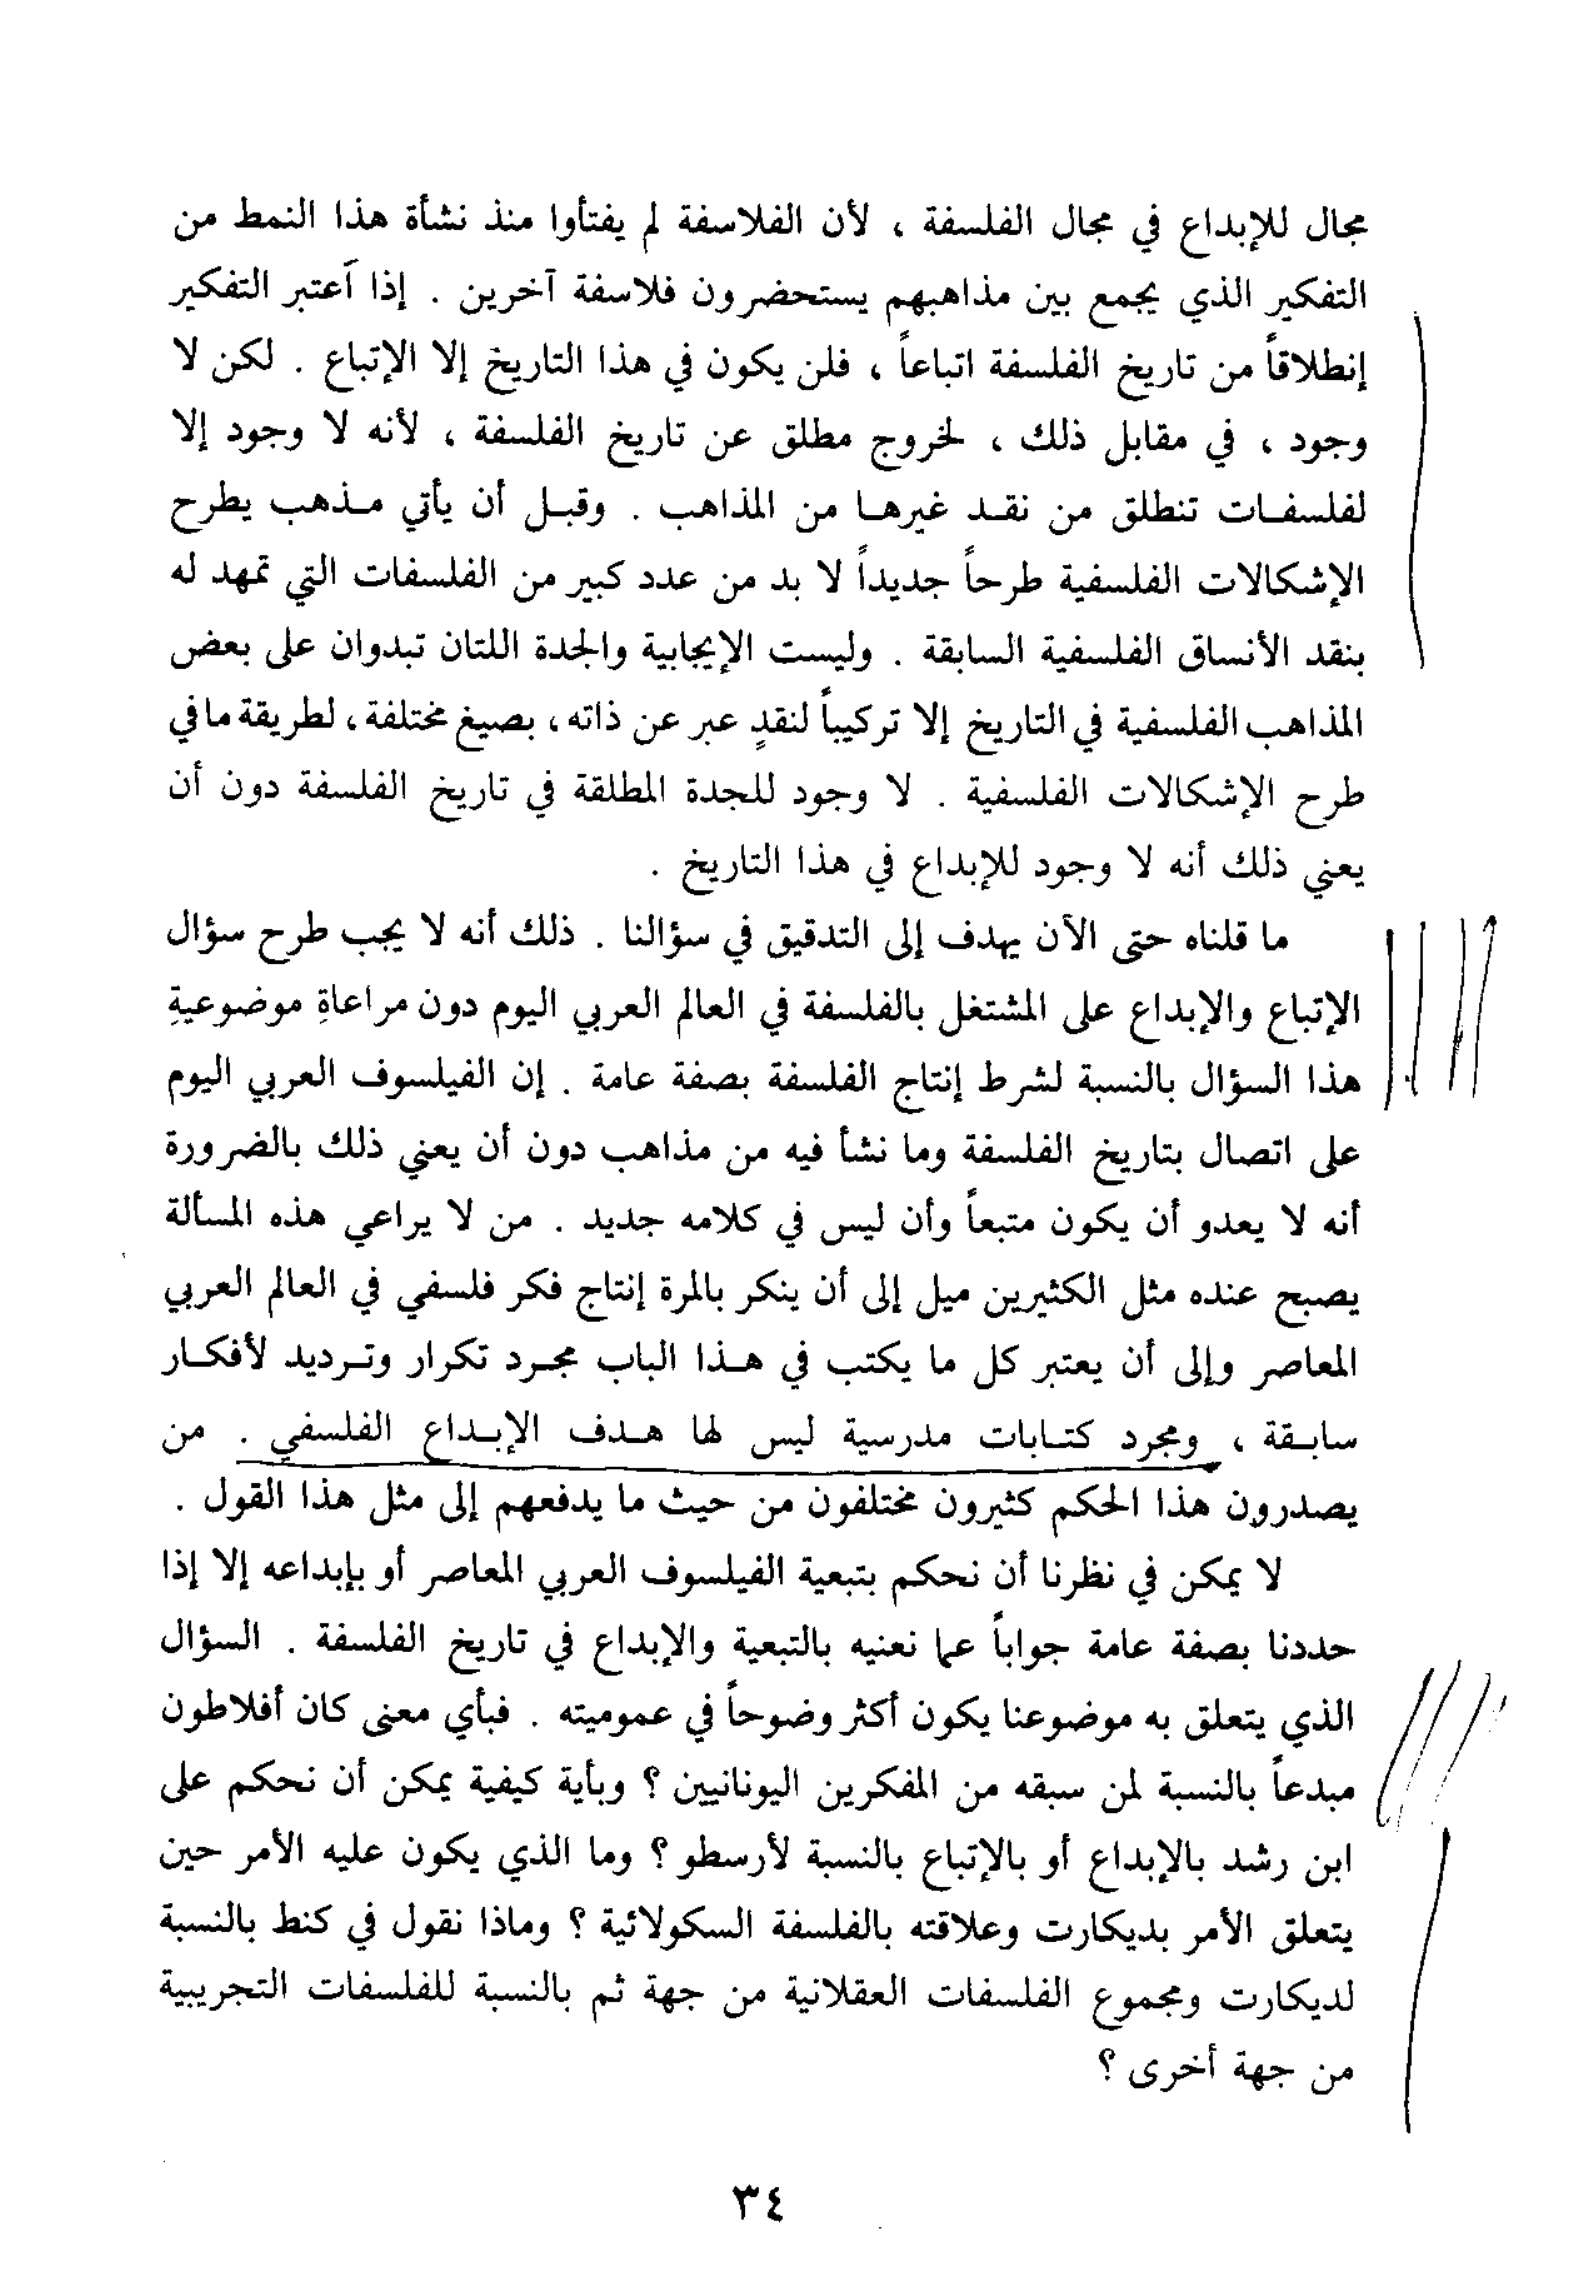 مجال للإبداع في مجال الفلسفة ، لأن الفلاسفة لم يفتأوا منذ نشأة هذا النمط من
التفكير الذي يجمع بين مذاهبهم يستحضرون فلاسفة آخرين . إذا اَعتبر التفكير
إنطلاقاً من تاريخ الفلسفة اتباعاً ، فلن يكون في هذا التاريخ إلا الإتباع . لكن لا
وجود ، في مقابل ذلك ، لخروج مطلق عن تاريخ الفلسفة ، لأنه لا وجود إلا
لفلسفـات تنطلق من نقـد غيرهـا من المذاهب . وقبـل أن يأتي مـذهب يطرح
الإشكالات الفلسفية طرحاً جديداً لا بد من عدد كبير من الفلسفات التي تمهد له
بنقد الأنساق الفلسفية السابقة . وليست الإيجابية والجدة اللتان تبدوان على بعض
المذاهب الفلسفية في التاريخ إلا تركيباً لنقدٍ عبر عن ذاته ، بصيغ مختلفة ، لطريقة ما في
طرح الإشكالات الفلسفية . لا وجود للجدة المطلقة في تاريخ الفلسفة دون أن
يعني ذلك أنه لا وجود للإبداع في هذا التاريخ .
ما قلناه حتى الآن يهدف إلى التدقيق في سؤالنا . ذلك أنه لا يجب طرح سؤال
الإتباع والإبداع على المشتغل بالفلسفة في العالم العربي اليوم دون مراعاةِ موضوعيةِ
هذا السؤال بالنسبة لشرط إنتاج الفلسفة بصفة عامة . إن الفيلسوف العربي اليوم
على اتصال بتاريخ الفلسفة وما نشأ فيه من مذاهب دون أن يعني ذلك بالضرورة
أنه لا يعدو أن يكون متبعاً وأن ليس في كلامه جديد . من لا يراعي هذه المسألة
يصبح عنده مثل الكثيرين ميل إلى أن ينكر بالمرة إنتاج فكر فلسفي في العالم العربي
المعاصر وإلى أن يعتبر كل ما يكتب في هـذا الباب مجـرد تكرار وتـرديد لأفكـار
سابـقة ، ومجرد كتـابات مدرسية ليس لها هـدف الإبـداع الفلسفي . من
يصدرون هذا الحكم كثيرون مختلفون من حيث ما يدفعهم إلى مثل هذا القول .
لا يمكن في نظرنا أن نحكم بتبعية الفيلسوف العربي المعاصر أو بإبداعه إلا إذا
حددنا بصفة عامة جواباً عما نعنيه بالتبعية والإبداع في تاريخ الفلسفة . السؤال
الذي يتعلق به موضوعنا يكون أكثر وضوحاً في عموميته . فبأي معنى كان أفلاطون
مبدعاً بالنسبة لمن سبقه من المفكرين اليونانيين ؟ وبأية كيفية يمكن أن نحكم على
ابن رشد بالإبداع أو بالإتباع بالنسبة لأرسطو ؟ وما الذي يكون عليه الأمر حين
يتعلق الأمر بديكارت وعلاقته بالفلسفة السكولائية ؟ وماذا نقول في كنط بالنسبة
لديكارت ومجموع الفلسفات العقلانية من جهة ثم بالنسبة للفلسفات التجريبية
من جهة أخرى ؟
٣٤